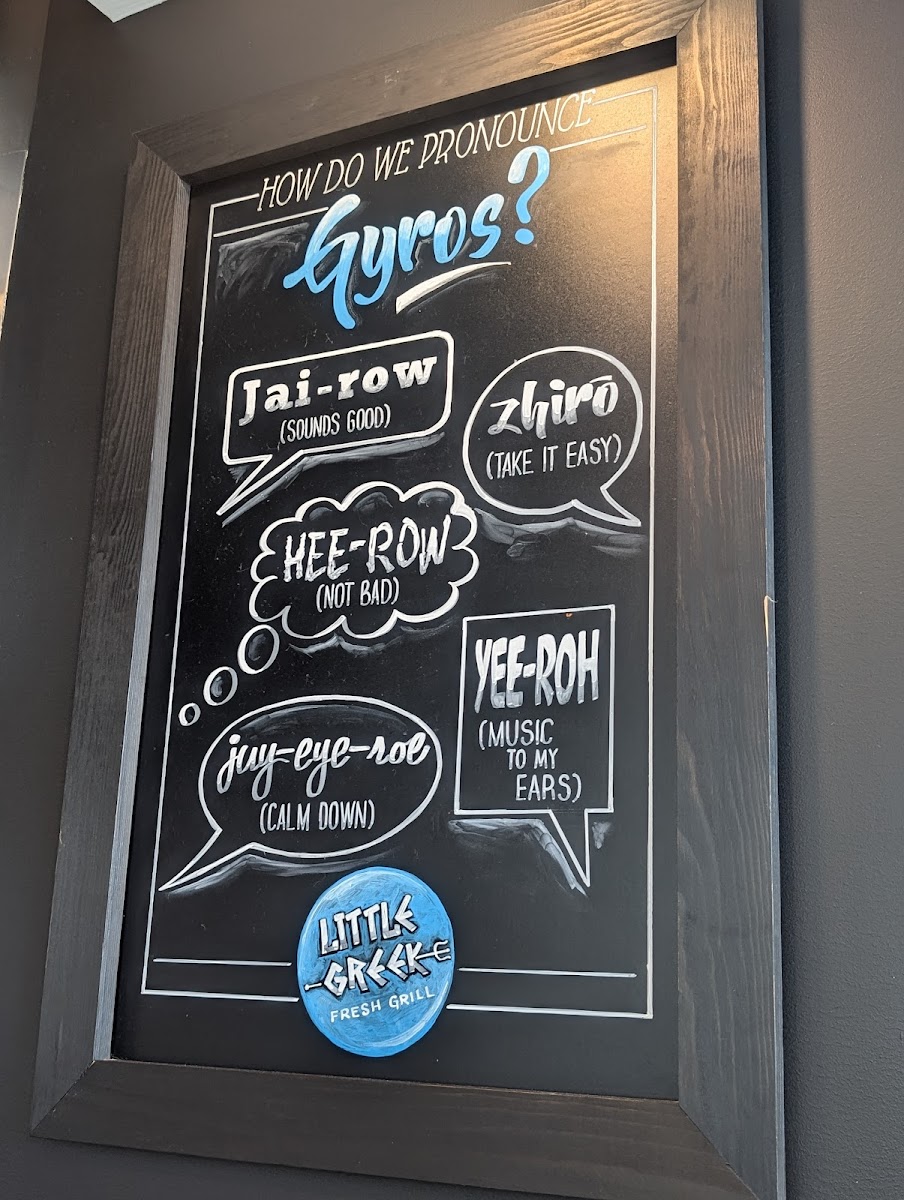 HOW DO WE PRONOUNCE
Gyros?
Jai-row
(SOUNDS GOOD)
zhirō
(TAKE IT EASY)
HEE-ROW
(NOT BAD)
YEE-ROH
(MUSIC
TO MY
EARS)
juy-eye-roe
(CALM DOWN)
LITTLE
GREEK
FRESH GRILL